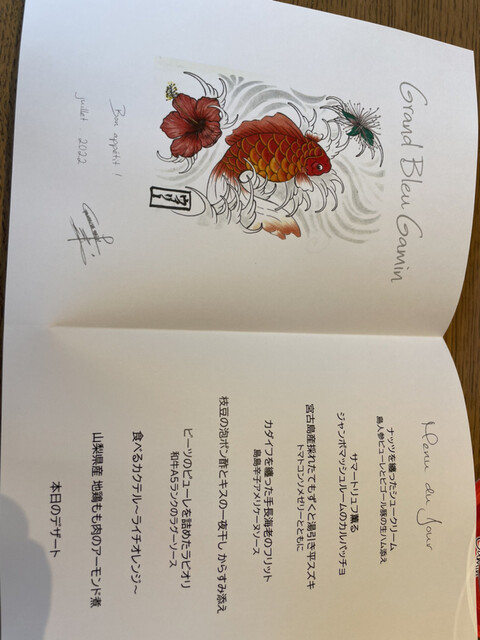 Grand Bleu Gamin
Bon appétit !
juillet 2022
Menu du Jour
ナッツを纏ったシュークリーム
島人参ピューレとビゴール豚の生ハム添え
サマートリュフ薫る
ジャンボマッシュルームのカルパッチョ
宮古島産採れたてもずくと湯引き平スズキ
トマトコンソメゼリーとともに
カダイフを纏った手長海老のフリット
島島辛子アメリケーヌソース
枝豆の泡ポン酢とキスの一夜干し からすみ添え
ビーツのピューレを詰めたラビオリ
和牛A5ランクのラグーソース
食べるカクテル～ライチオレンジ～
山梨県産 地鶏もも肉のアーモンド煮
本日のデザート